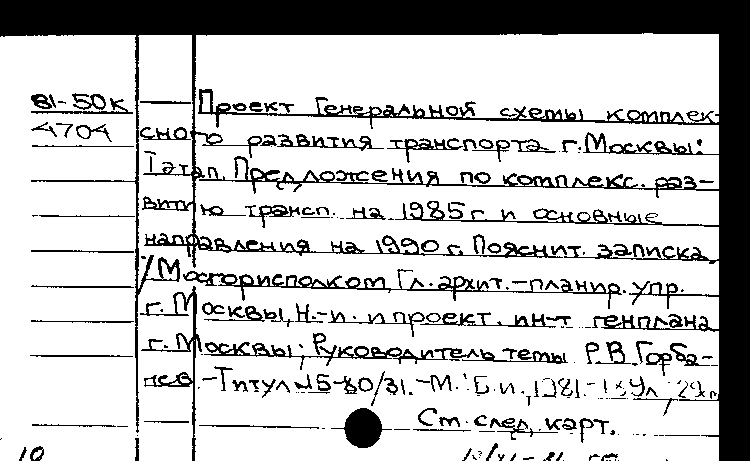 81-50к Проект Генеральной схемы комплек-
4704 сного развития транспорта г. Москвы:
I этап. Предложения по комплекс. раз-
витию трансп. на 1985 г. и основные
направления на 1990 г. Пояснит. записка.
/Мосгорисполком, Гл. архит.-планир. упр.
г. Москвы, Н.-и. и проект. ин-т генплана
г. Москвы; Руководитель темы Р.В. Горба-
нев. -Титул №5-80/31. -М.: Б.и., 1981.
См. след. карт.
10